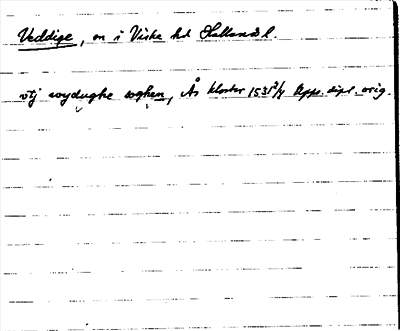 Veddige, sn i Viske hd Halland l.
vtj wydughe soghen, Ås kloster 1531 2/7 Upps. dipl. orig.